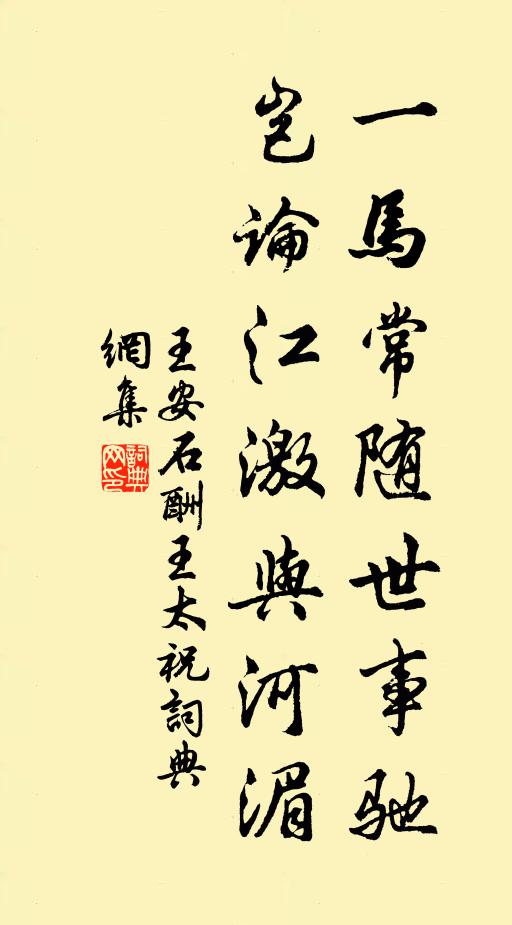 一馬常随世事驰
岂論江激與河湄
王安石酬王太祝詞典
網集
詞典
网印